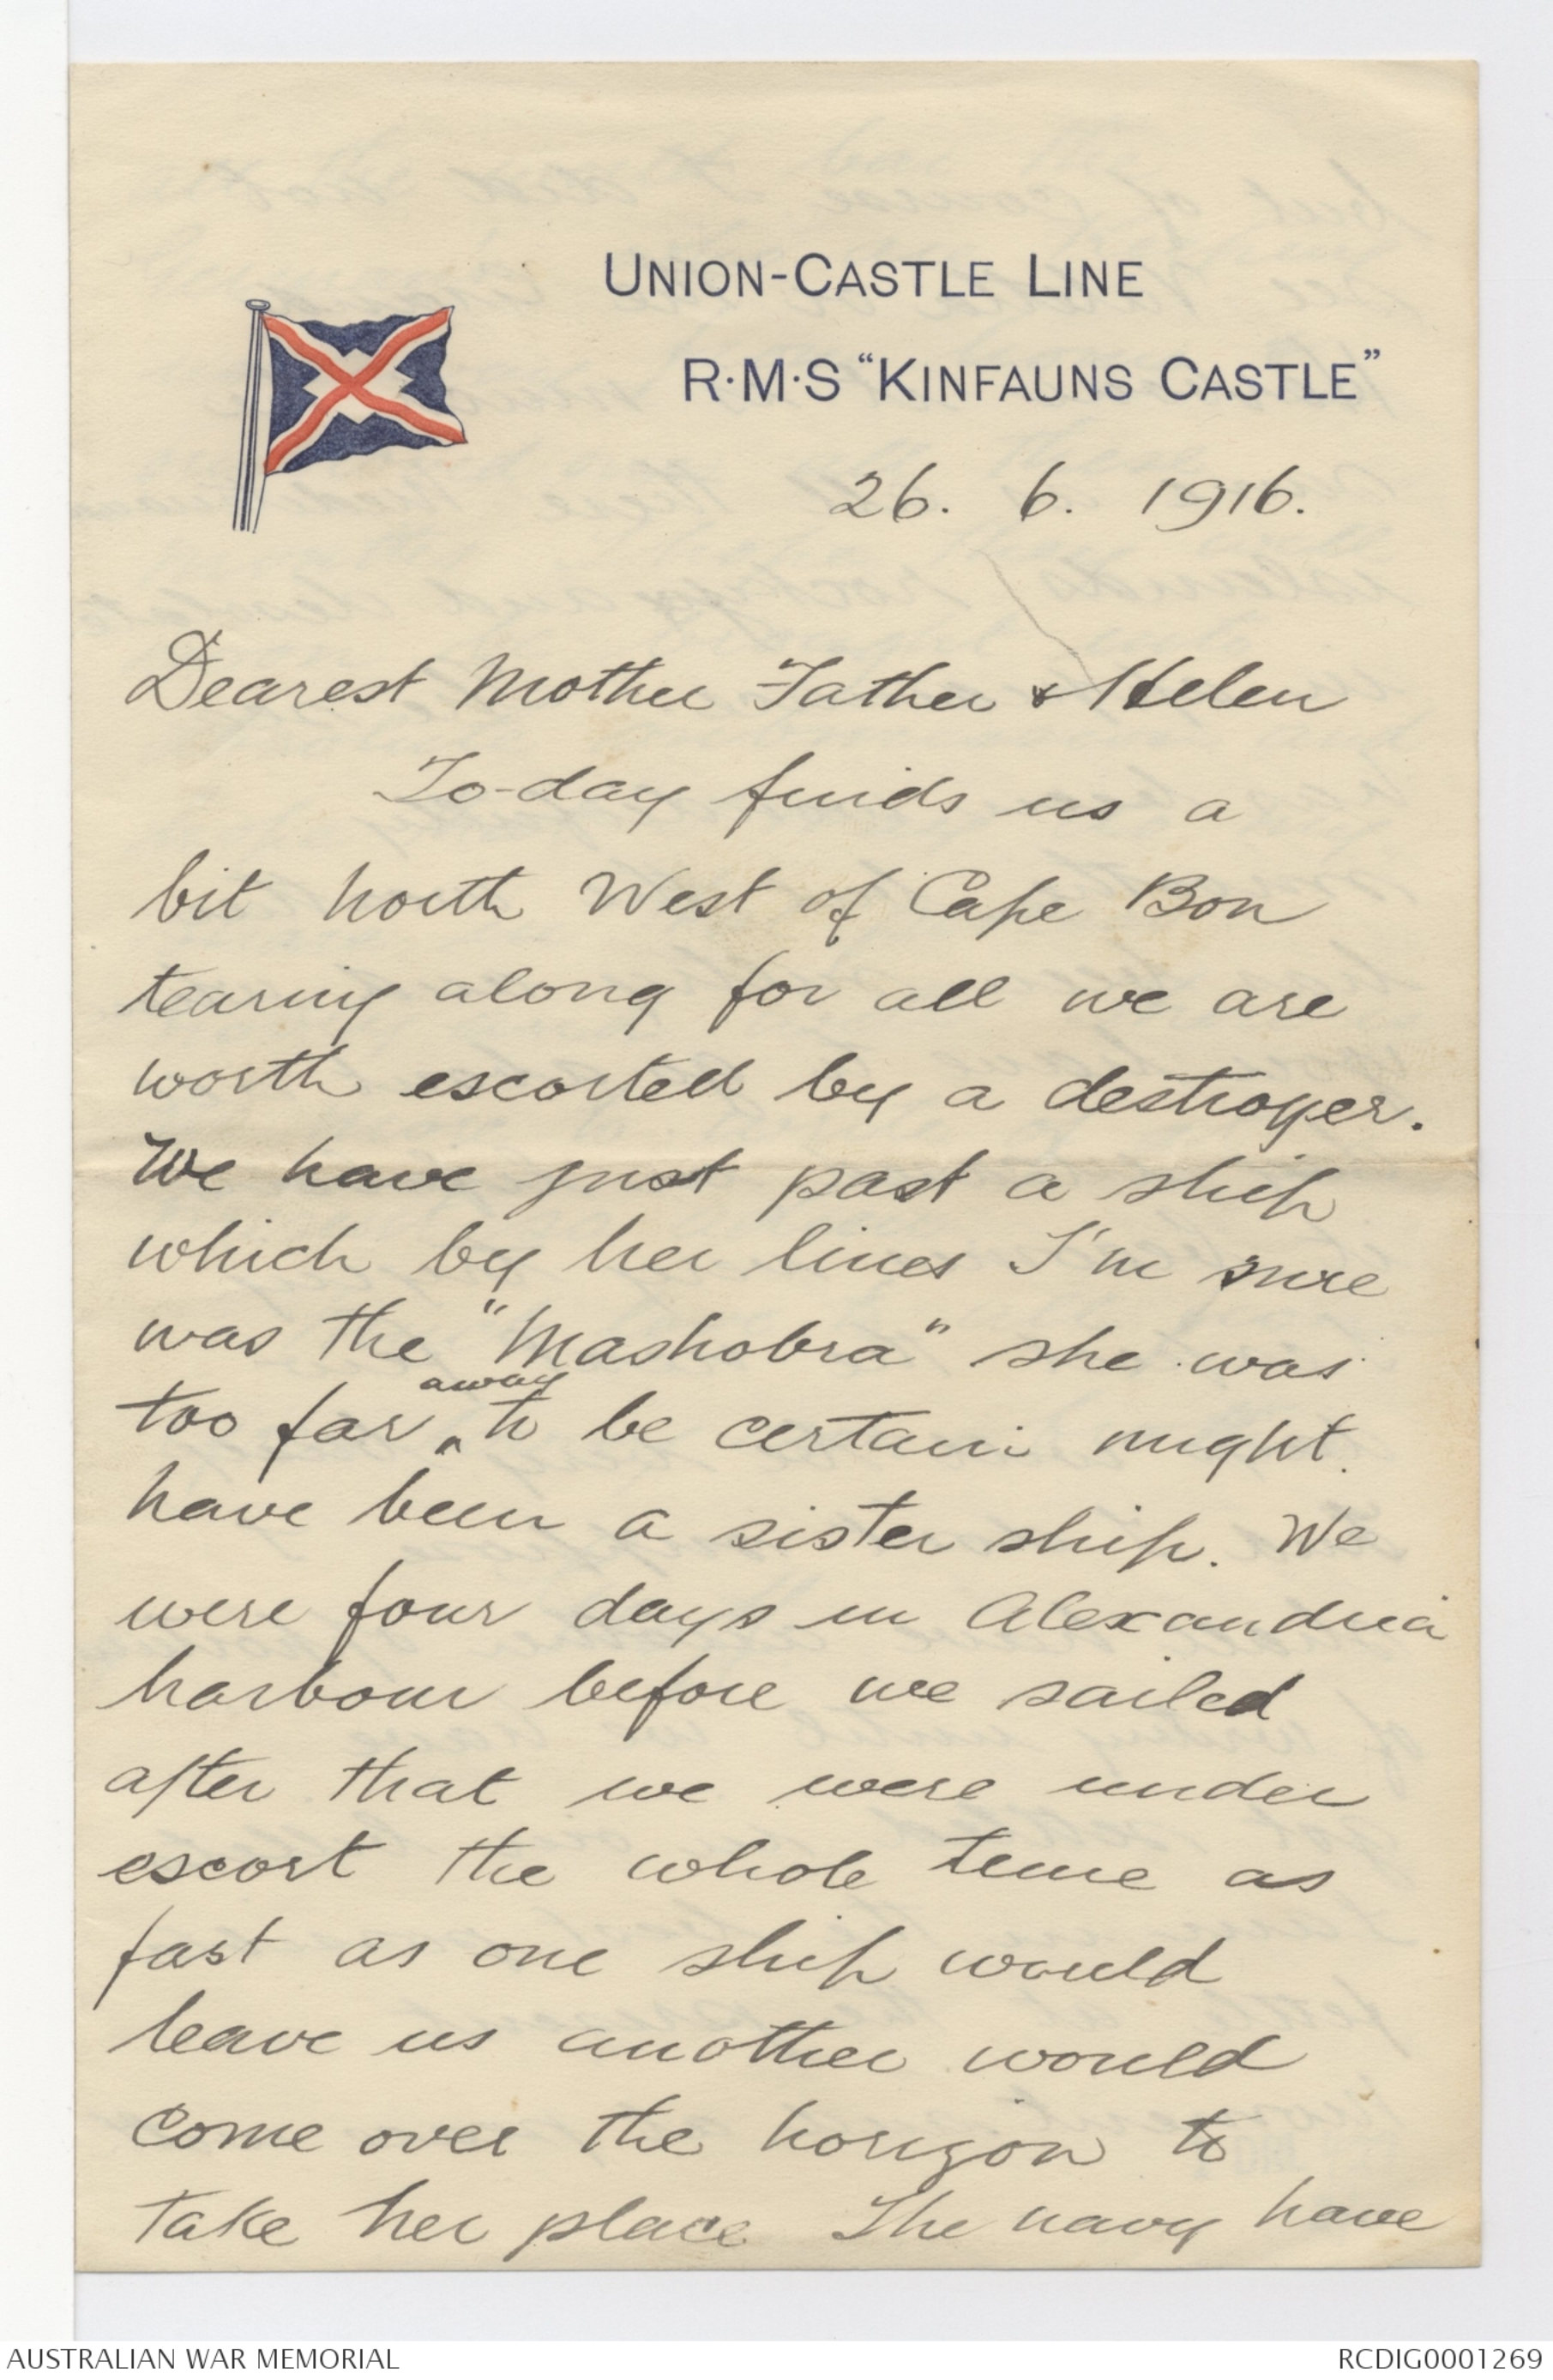 UNION-CASTLE LINE
R·M·S "KINFAUNS CASTLE"
26. 6. 1916.
Dearest Mother Father & Helen
To-day finds us a
bit north West of Cape Bon
tearing along for all we are
worth escorted by a destroyer.
We have just past a ship
which by her lines I'm sure
was the "Mashobra" she was
away
too far ^ to be certain might
have been a sister ship. We
were four days in Alexandria
harbour before we sailed
after that we were under
escort the whole time as
fast as one ship would
leave us another would
come over the horizon to
take her place The navy have
AUSTRALIAN WAR MEMORIAL
RCDIG0001269